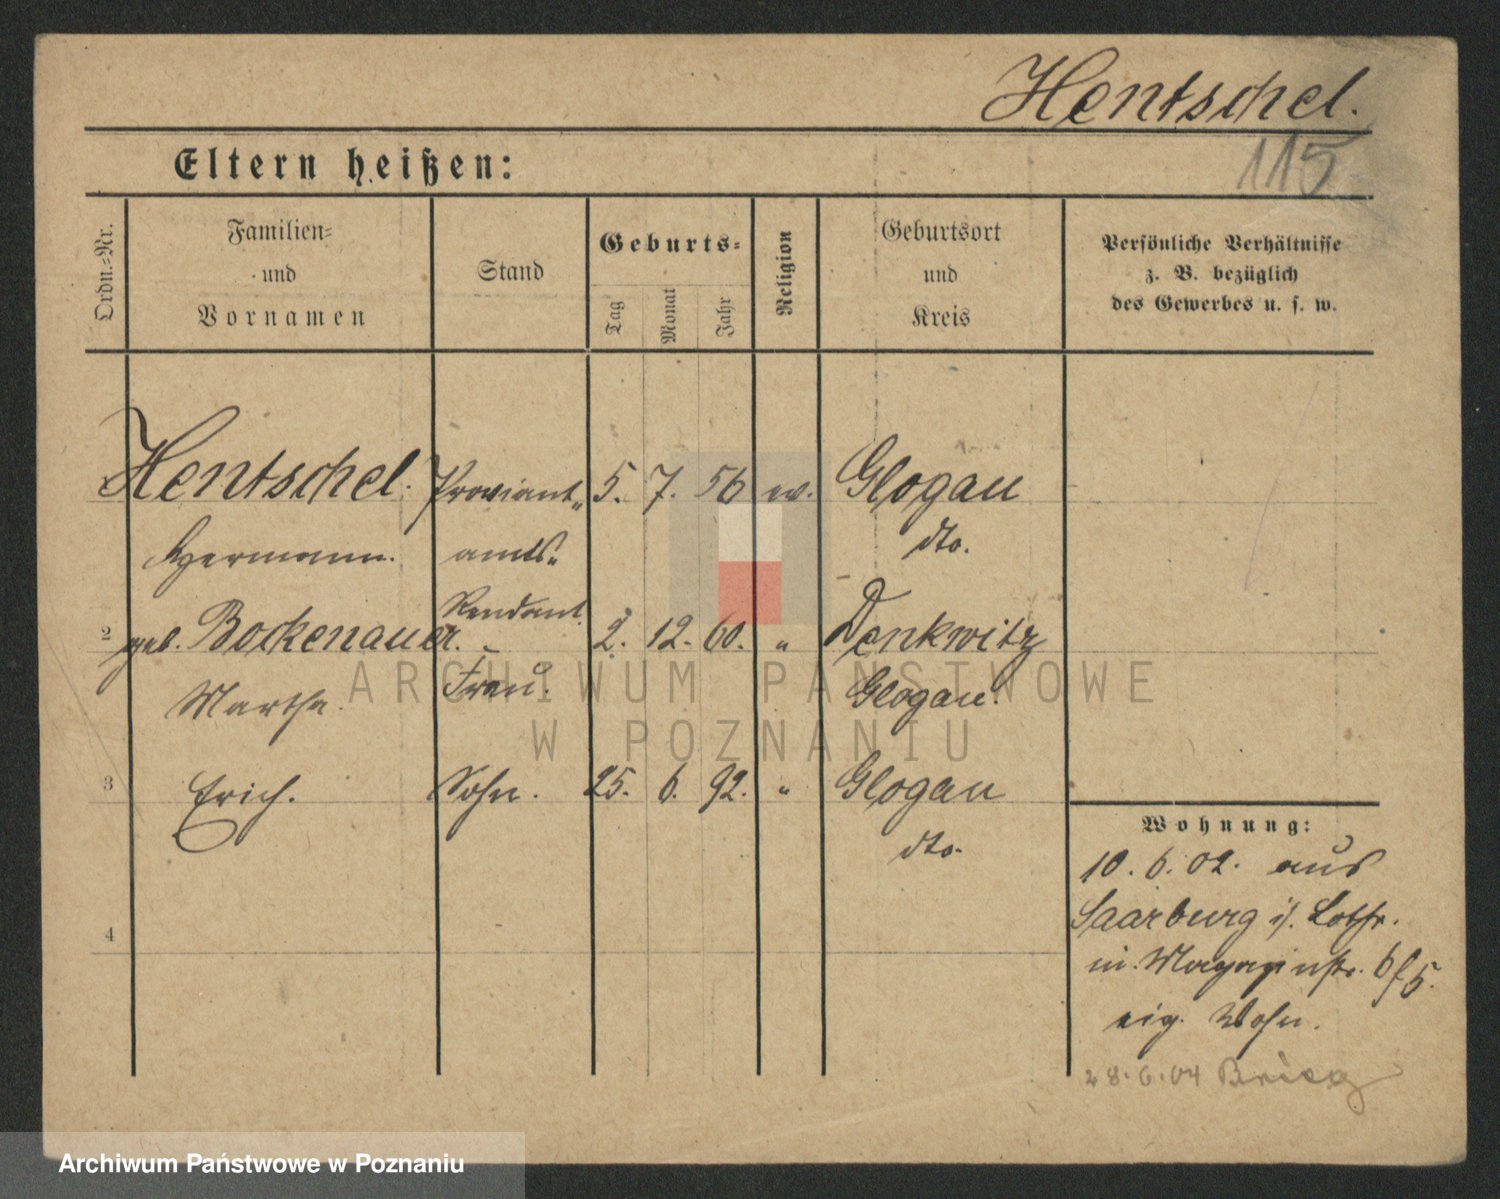 Hentschel.
115
Eltern heißen:
Ordn.-Nr.
Familien-
und
Vornamen
Stand
Geburts-
Tag
Monat
Jahr
Religion
Geburtsort
und
Kreis
Persönliche Verhältnisse
z. B. bezüglich
des Gewerbes u. s. w.
Hentschel. Proviant„ 5. 7. 56 ev. Glogau
Hermann. amts„ dto.
Rendant.
2 geb. Bockenauer. 2. 12. 60. „ Denkwitz
Martha. Frau. Glogau.
3 Erich. Sohn. 25. 6. 92. „ Glogau
dto.
4
Wohnung:
10. 6. 02. aus
Saarburg i/. Lothr.
in Magazinstr. 6/5.
eig. Wohn.
28.6.04 Brieg
ARCHIWUM PAŃSTWOWE
W POZNANIU
Archiwum Państwowe w Poznaniu